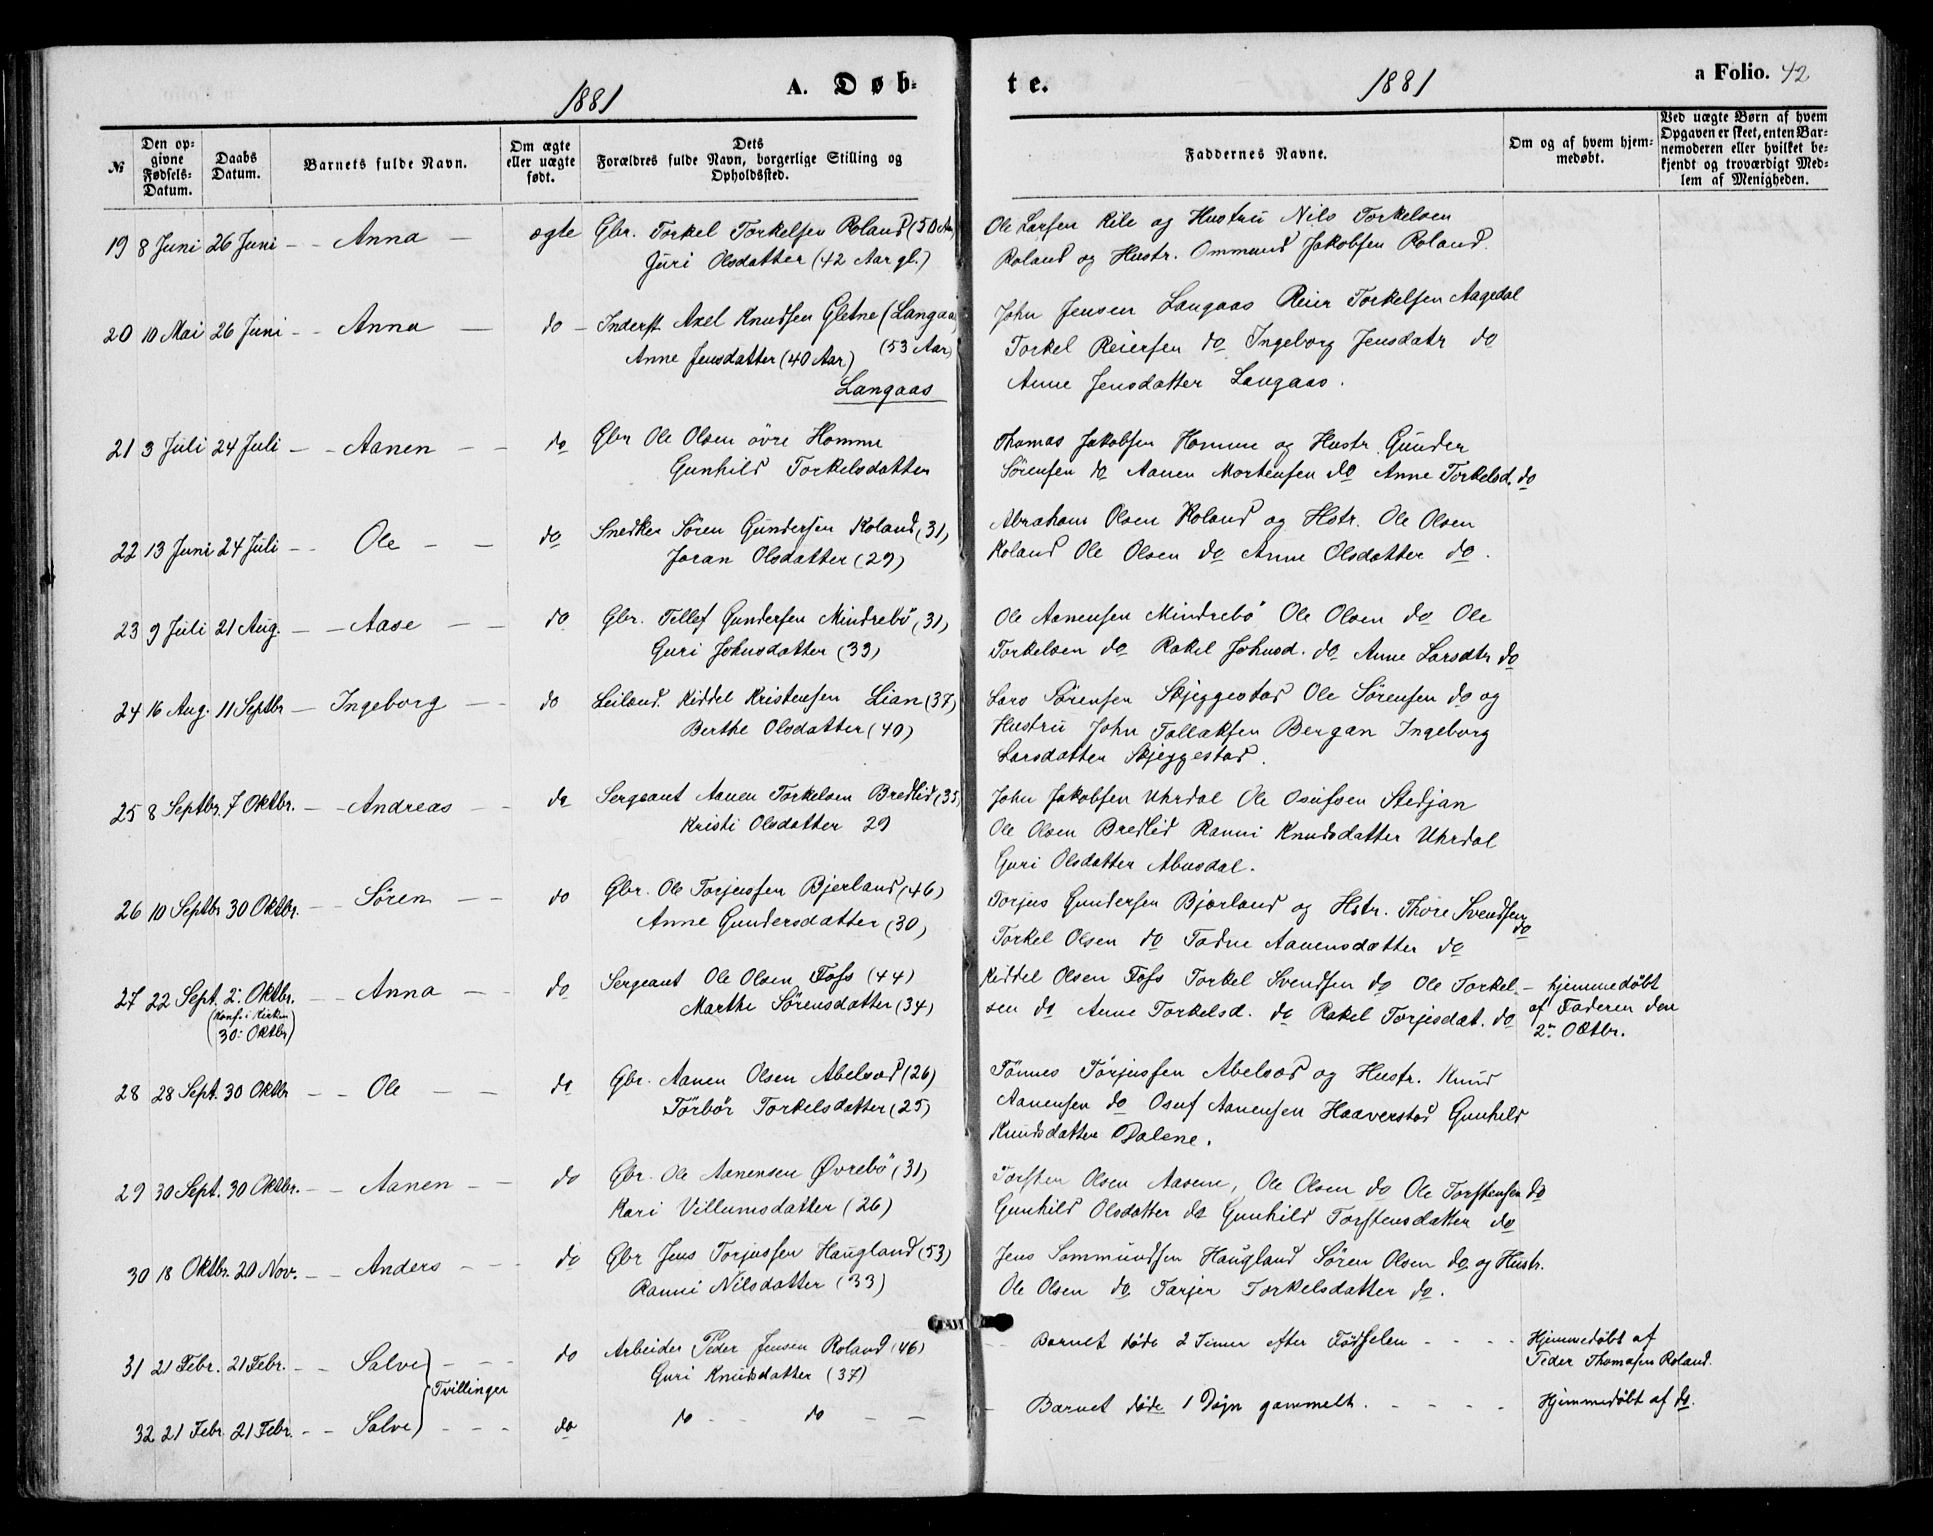 1881 A. Døb-
te. 1881 a Folio. 42
№ Den opgivne Fødsels-Datum. Daabs Datum. Barnets fulde Navn. Om ægte eller uægte født. Dets Forældres fulde Navn, borgerlige Stilling og Opholdssted. Faddernes Navne. Om og af hvem hjemmedøbt. Ved uægte Børn af hvem Opgaven er skeet, enten Barnemoderen eller hvilket bekjendt og troværdigt Medlem af Menigheden.
19 8 Juni 26 Juni - - Anna - ægte Gbr. Torkel Torkelsen Roland (50 Aar)
Guri Olsdatter (42 Aar gl.)
Ole Larsen Kile og Hustru Nils Torkelsen
Roland og Hustr. Ommund Jakobsen Roland.
20 10 Mai 26 Juni - - Anna - do - Inderst Axel Knudsen Gletne (Langaas)
Anne Jensdatter (40 Aar) (53 Aar)
Langaas
John Jensen Langaas Reier Torkelsen Aagedal
Torkel Reiersen do Ingeborg Jensdatr do
Anne Jensdatter Langaas.
21 3 Juli 24 Juli - - Aanen - - do Gbr Ole Olsen övre Homme
Gunhild Torkelsdatter
Thomas Jakobsen Homme og Hustr. Gunder
Sørensen do Aanen Mortensen do Anne Torkelsd. do
22 13 Juni 24 Juli - - Ole - - do Snedker Sören Gundersen Roland (31)
Joran Olsdatter (29)
Abraham Olsen Roland og Hstr. Ole Olsen
Roland Ole Olsen do Anne Olsdatter do.
23 9 Juli 21 Aug. - - Aase - - do Gbr. Tellef Gundersen Mindrebö (31)
Guri Johnsdatter (33)
Ole Aanensen Mindrebö Ole Olsen do Ole
Torkelsen do Rakel Johnsd. do Anne Larsdtr do
24 16 Aug. 11 Septbr - Ingeborg - - do Leiland. Kiddel Kristensen Lian (37)
Berthe Olsdatter (40)
Lars Sörensen Skjeggestad Ole Sörensen do og
Hustru John Tallaksen Bergan Ingeborg
Larsdatter Skjeggestad.
25 8 Septbr. 7 Oktbr. - - Andreas - - do Sergeant Aanen Torkelsen Bredlid (35)
Kristi Olsdatter 29
John Jakobsen Uhrdal Ole Osufsen Stedjan
Ole Olsen Bredlid Ranni Knudsdatter Uhrdal
Guri Olsdatter Abusdal.
26 10 Septbr 30 Oktbr. - - Sören - - do Gbr. Ole Torjussen Bjerland (46)
Anne Gundersdatter (30)
Torjus Gundersen Bjorland og Hstr. Thore Svendsen do
Torkel Olsen do Tadne Aanensdatter do
27 22 Sept. 2: Oktbr. - - Anna - - do Sergeant Ole Olsen Fofs (44)
(Konf. i Kirken 30: Oktbr) Marthe Sörensdatter (34)
Kiddel Olsen Fofs Torkel Svendsen do Ole Torkel- - hjemmedöbt
sen do Anne Torkelsd. do Rakel Torjusdat. do af Faderen den
2: Oktbr.
28 28 Sept. 30 Oktbr - - Ole - - do Gbr. Aanen Olsen Abelsæd (26)
Törbör Torkelsdatter (25)
Tönnes Törjussen Abelsæd og Hustr. Knud
Aanensen do Osuf Aanensen Haaverstad Gunhild
Knudsdatter Dalene.
29 30 Sept. 30 Oktbr. - - Aanen - - do Gbr. Ole Aanensen Øvrebö (31)
Kari Villumsdatter (26)
Torsten Olsen Aasene, Ole Olsen do Ole Torstensen do
Gunhild Olsdatter do Gunhild Torstensdatter do
30 18 Oktbr. 20 Nov. - - Anders - - do Gbr Jens Torjussen Haugland (53)
Ranni Nilsdatter (33)
Jens Sommundsen Haugland Sören Olsen do og Hustr.
Ole Olsen do Tarjer Torkelsdatter do.
31 21 Febr. 21 Febr. - - Salve - - - do Arbeider Peder Jensen Roland (46)
Guri Knudsdatter (37)
Tvillinger
Barnet döde 2 Timer efter Födselen - - - - Hjemmedöbt af
Peder Thomasen Roland.
32 21 Febr. 21 Febr. - - Salve - - - do do - - do - -
Barnet döde 1 Døgn gammelt. - - - - Hjemmedöbt af do.